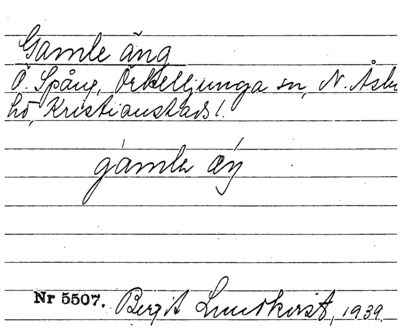 Gamle äng
Ö. Spång, Örkelljunga sn, N. Åsbo
hd, Kristianstads l.
gamlə æŋ
Nr 5507. Bergit Lundkvist, 1939.